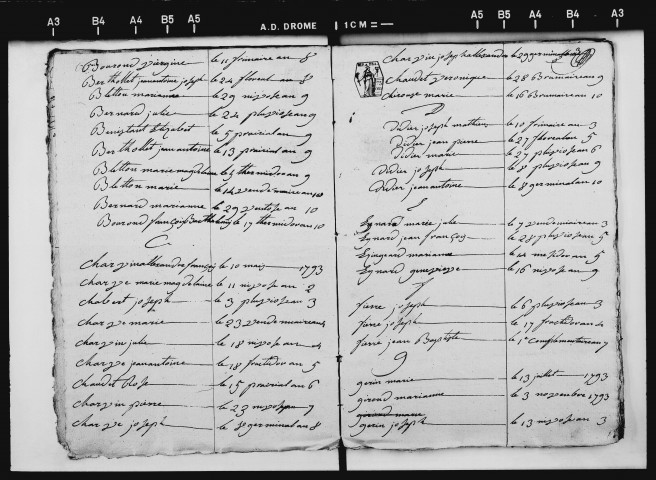 A3 B4 A4 B5 A5 A.D. DROME 1CM A5 B5 A4 B4 A3
Bourond virgine le 11 frimaire an 8
Berthollet jean antoine joseph le 24 floreal an 8
Bletton marianne le 29 nivose an 9
Bernard julie le 24 pluviose an 9
le 5 prairial an 9
Berthollet jean antoine le 13 prairial an 9
Bletton marie magdelaine le thermidor an 9
Bletton marie le 14 vendemiaire an 10
Bernard marianne le 29 ventose an 10
Bourond françois Barthelemy le 17 thermidor an 10
C
Charvin alexandre françois le 10 mars 1793
Charve marie magdelaine le 11 nivose an 2
Chabert joseph le 3 pluviose an 3
Charve marie le 23 vendemiaire an 4
Charvin julie le 18 nivose an 4
Charve jean antoine le 18 fructidor an 5
Chaudet Rose le 15 prairial an 6
Charvin pierre le 23 nivose an 7
Charve joseph le 8 germinal an 8
Charvin joseph alexandre le 29 germinal
Chaudet veronique le 28 Brumaire an 9
marie le 16 Brumaire an 10
D
Didier joseph mathieu le 10 frimaire an 3
Didier jean pierre le 27 floreal an 5
Didier marie le 27 pluviose an 6
Didier joseph le 8 pluviose an 9
Didier jean antoine le 8 germinal an 10
E
Eynard marie julie le 7 vendemiaire an 3
Eynard jean françois le 28 pluviose an 5
Eynard marianne le 14 messidor an 5
Eynard le 16 nivose an 9
F
Farre joseph le 6 pluviose an 3
Farre joseph le 17 fructidor an 4
Farre jean Baptiste le 1er complementaire an 7
G
gerin marie le 13 juillet 1793
giroud marianne le 3 novembre 1793
giroud marie
gerin joseph le 13 nivose an 3